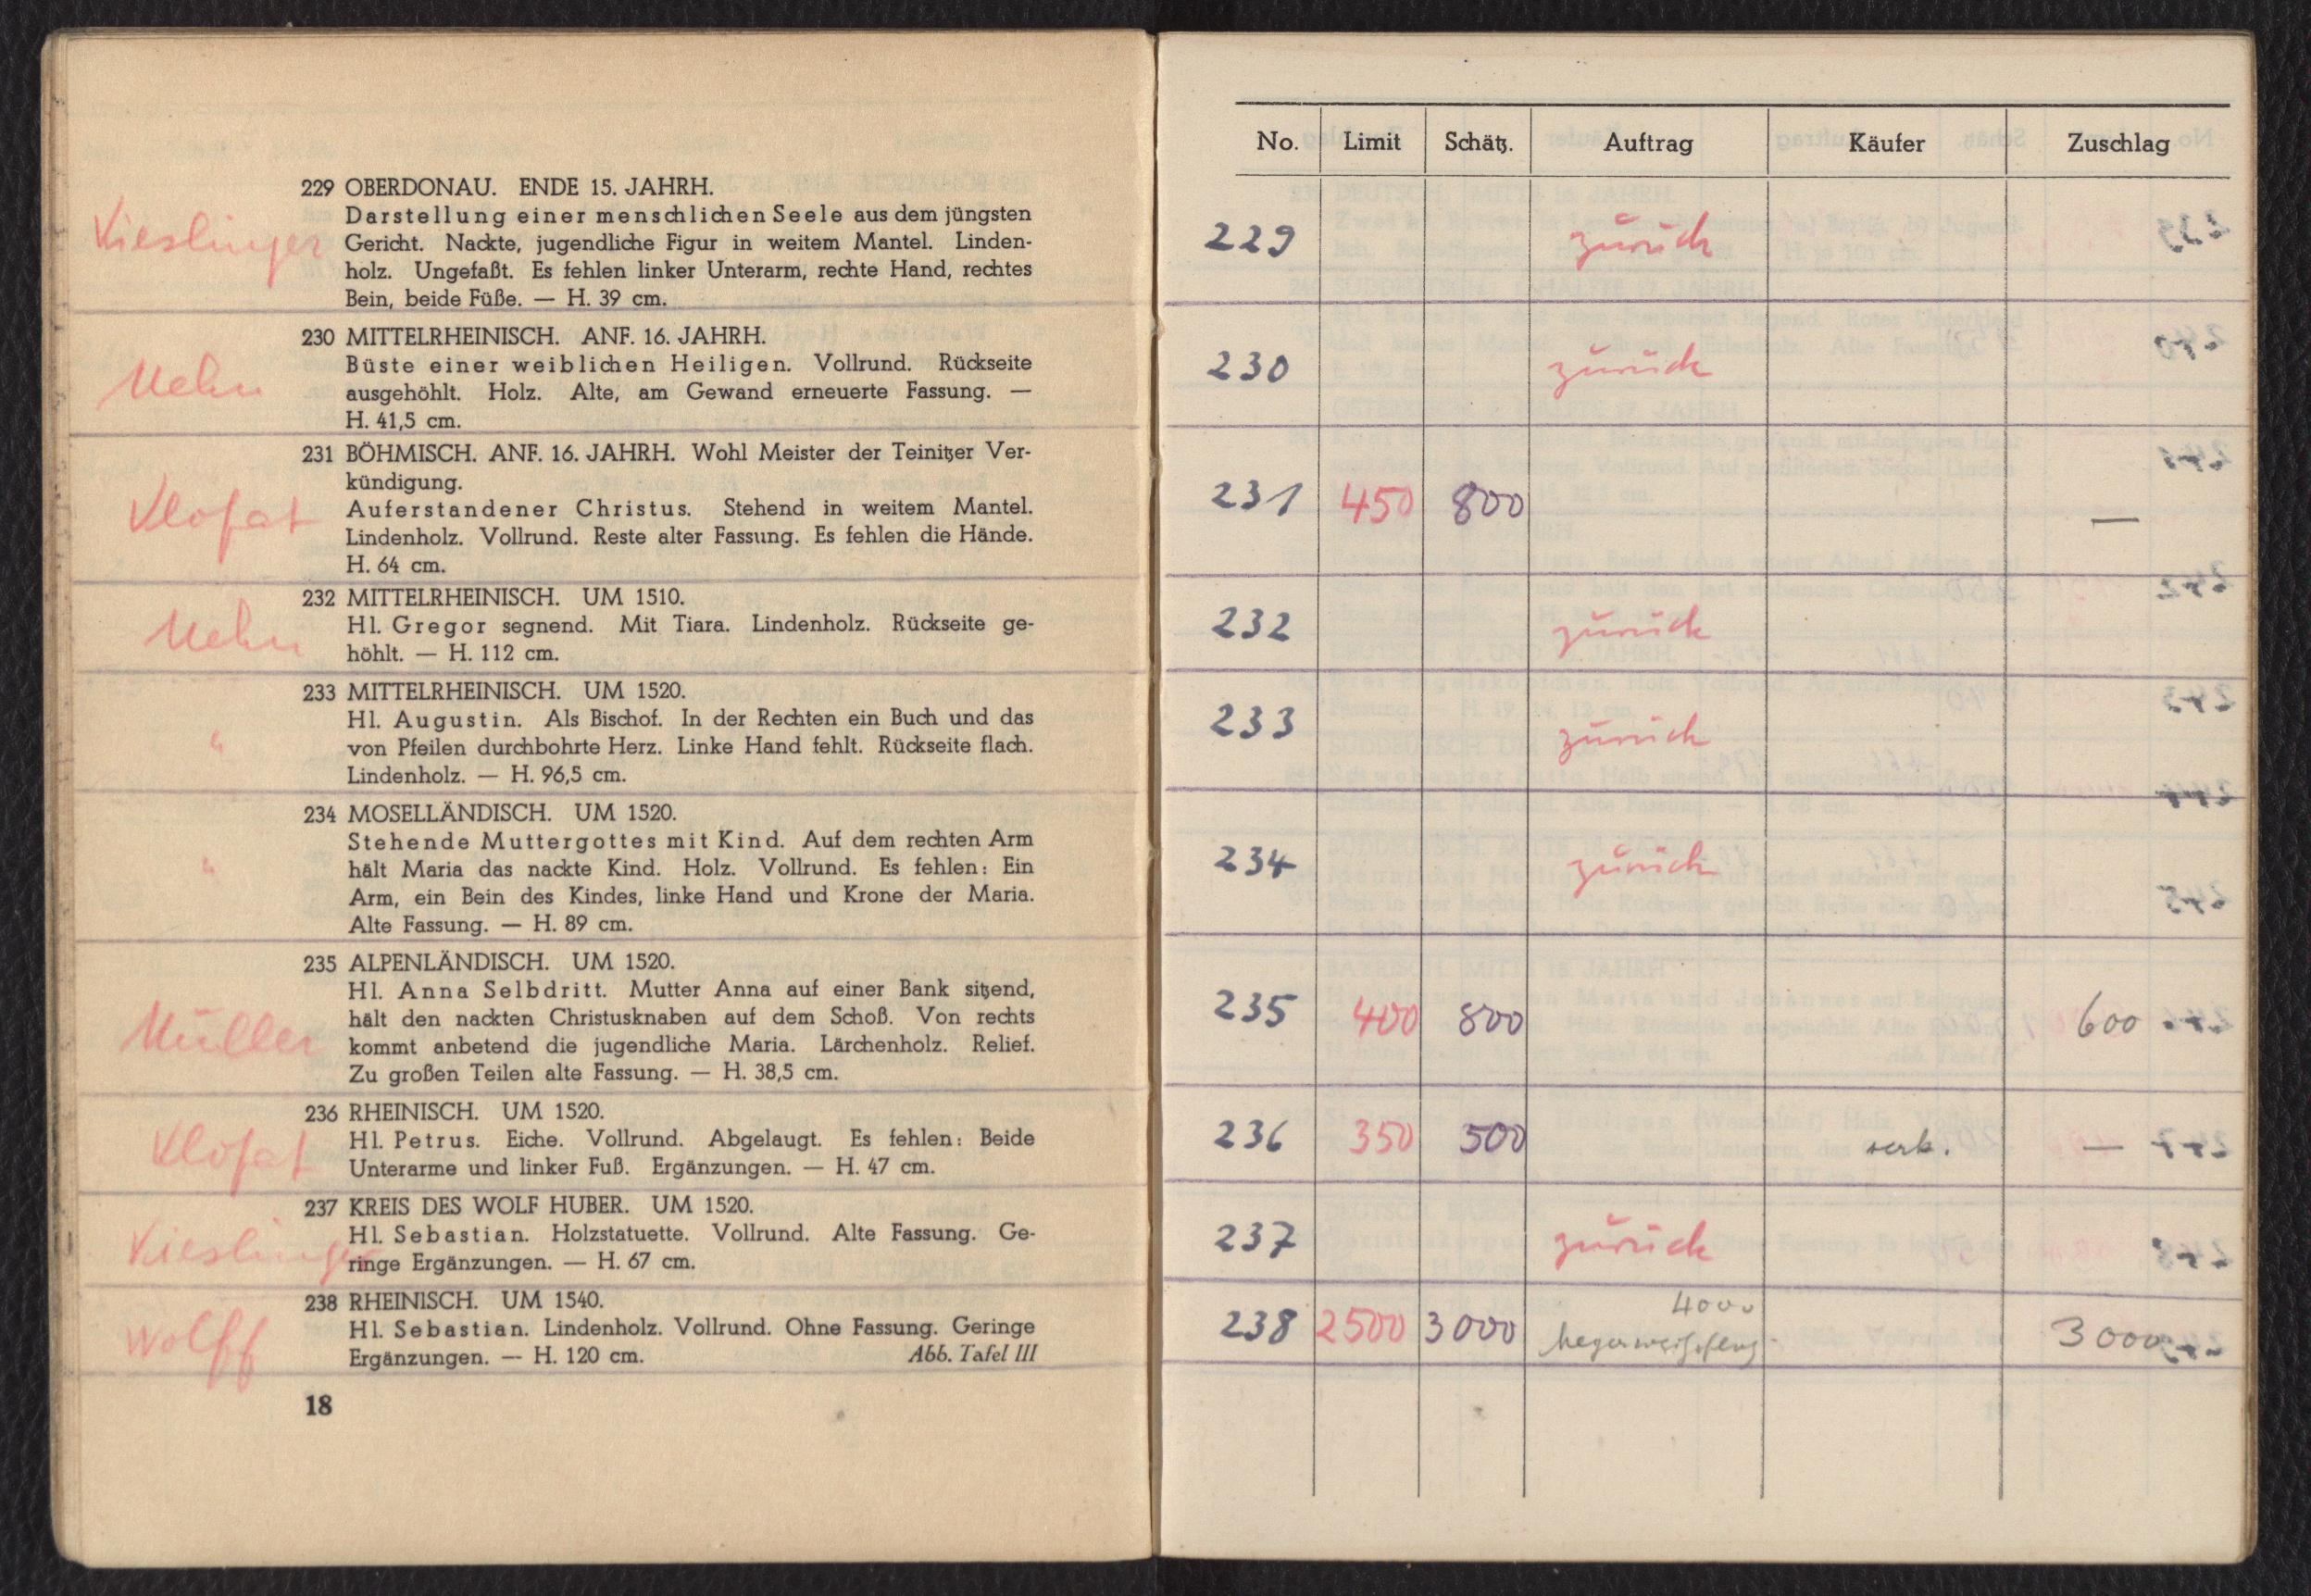 Kieslinger
229 OBERDONAU. ENDE 15. JAHRH.
Darstellung einer menschlichen Seele aus dem jüngsten
Gericht. Nackte, jugendliche Figur in weitem Mantel. Linden-
holz. Ungefaßt. Es fehlen linker Unterarm, rechte Hand, rechtes
Bein, beide Füße. — H. 39 cm.
230 MITTELRHEINISCH. ANF. 16. JAHRH.
Büste einer weiblichen Heiligen. Vollrund. Rückseite
ausgehöhlt. Holz. Alte, am Gewand erneuerte Fassung. —
H. 41,5 cm.
231 BÖHMISCH. ANF. 16. JAHRH. Wohl Meister der Teinitzer Ver-
kündigung.
Klofat
Auferstandener Christus. Stehend in weitem Mantel.
Lindenholz. Vollrund. Reste alter Fassung. Es fehlen die Hände.
H. 64 cm.
232 MITTELRHEINISCH. UM 1510.
Hl. Gregor segnend. Mit Tiara. Lindenholz. Rückseite ge-
höhlt. — H. 112 cm.
233 MITTELRHEINISCH. UM 1520.
Hl. Augustin. Als Bischof. In der Rechten ein Buch und das
" von Pfeilen durchbohrte Herz. Linke Hand fehlt. Rückseite flach.
Lindenholz. — H. 96,5 cm.
234 MOSELLÄNDISCH. UM 1520.
Stehende Muttergottes mit Kind. Auf dem rechten Arm
" hält Maria das nackte Kind. Holz. Vollrund. Es fehlen: Ein
Arm, ein Bein des Kindes, linke Hand und Krone der Maria.
Alte Fassung. — H. 89 cm.
235 ALPENLÄNDISCH. UM 1520.
Hl. Anna Selbdritt. Mutter Anna auf einer Bank sitzend,
hält den nackten Christusknaben auf dem Schoß. Von rechts
Müller
kommt anbetend die jugendliche Maria. Lärchenholz. Relief.
Zu großen Teilen alte Fassung. — H. 38,5 cm.
236 RHEINISCH. UM 1520.
Klofat
Hl. Petrus. Eiche. Vollrund. Abgelaugt. Es fehlen: Beide
Unterarme und linker Fuß. Ergänzungen. — H. 47 cm.
237 KREIS DES WOLF HUBER. UM 1520.
Kieslinger
Hl. Sebastian. Holzstatuette. Vollrund. Alte Fassung. Ge-
ringe Ergänzungen. — H. 67 cm.
238 RHEINISCH. UM 1540.
Wolff
Hl. Sebastian. Lindenholz. Vollrund. Ohne Fassung. Geringe
Ergänzungen. — H. 120 cm. Abb. Tafel III
18
No. Limit Schätz. Auftrag Käufer Zuschlag
229 zurück
230 zurück
231 450 800 —
232 zurück
233 zurück
234 zurück
235 400 800 600
236 350 500 verk. —
237 zurück
4000
238 2500 3000 3000